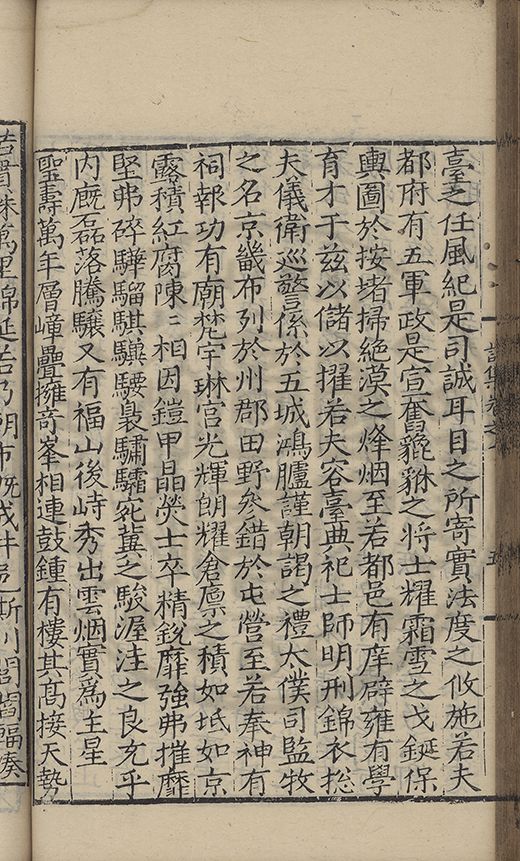 臺之任風紀是司誠耳目之所寄實法度之攸施若夫
都府有五軍政是宣奮貔貅之將士耀霜雪之戈鋋保
輿圖於按堵掃絶漠之烽烟至若都邑有庠辟雍有學
育才于茲以儲以擢若夫容臺典祀士師明刑錦衣揔
夫儀衛巡警係於五城鴻臚謹朝謁之禮太僕司監牧
之名京畿布列於州郡田野參錯於屯營至若奉神有
祠報功有廟梵宇琳宮光輝朗耀倉廩之積如坻如京
露積紅腐陳〻相因鎧甲晶熒士卒精銳靡強弗摧靡
堅弗碎驊騮騏驥騕褭驌驦宛冀之駿渥洼之良充乎
内厩磊落騰驤又有福山後峙秀出雲烟實爲主星
聖壽萬年層嶂疊擁奇峯相連鼓鍾有樓其髙接天勢
萬里綿延若乃
五